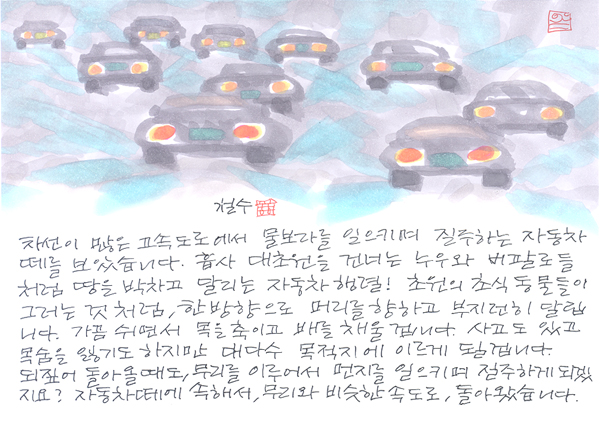 철수
차선이 많은 고속도로에서 물보라를 일으키며 질주하는 자동차
떼를 보았습니다. 흡사 대초원을 건너는 누우와 버팔로들
처럼 땅을 박차고 달리는 자동차 행렬! 초원의 초식동물들이
그러는 것처럼, 한 방향으로 머리를 향하고 부지런히 달립
니다. 가끔 쉬면서 목을 축이고 배를 채울 겁니다. 사고도 있고
목숨을 잃기도 하지만 대다수 목적지에 이르게 되겠됩니다.
되짚어 돌아올 때도, 무리를 이루어서 먼지를 일으키며 질주하게 되겠
지요? 자동차떼에 속해서, 무리와 비슷한 속도로, 돌아왔습니다.